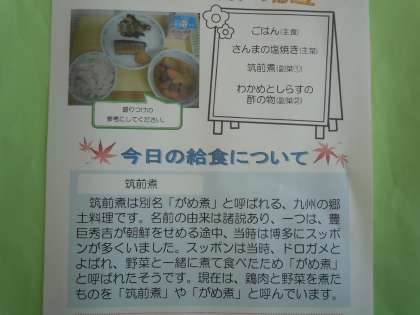 ごはん(主食)
さんまの塩焼き(主菜)
筑前煮(副菜①)
わかめとしらすの
酢の物(副菜②)
盛りつけの
参考にしてください。
今日の給食について
筑前煮
筑前煮は別名「がめ煮」と呼ばれる、九州の郷
土料理です。名前の由来は諸説あり、一つは、豊
臣秀吉が朝鮮をせめる途中、当時は博多にスッポ
ンが多くいました。スッポンは当時、ドロガメと
よばれ、野菜と一緒に煮て食べたため「がめ煮」
と呼ばれたそうです。現在は、鶏肉と野菜を煮た
ものを「筑前煮」や「がめ煮」と呼んでいます。